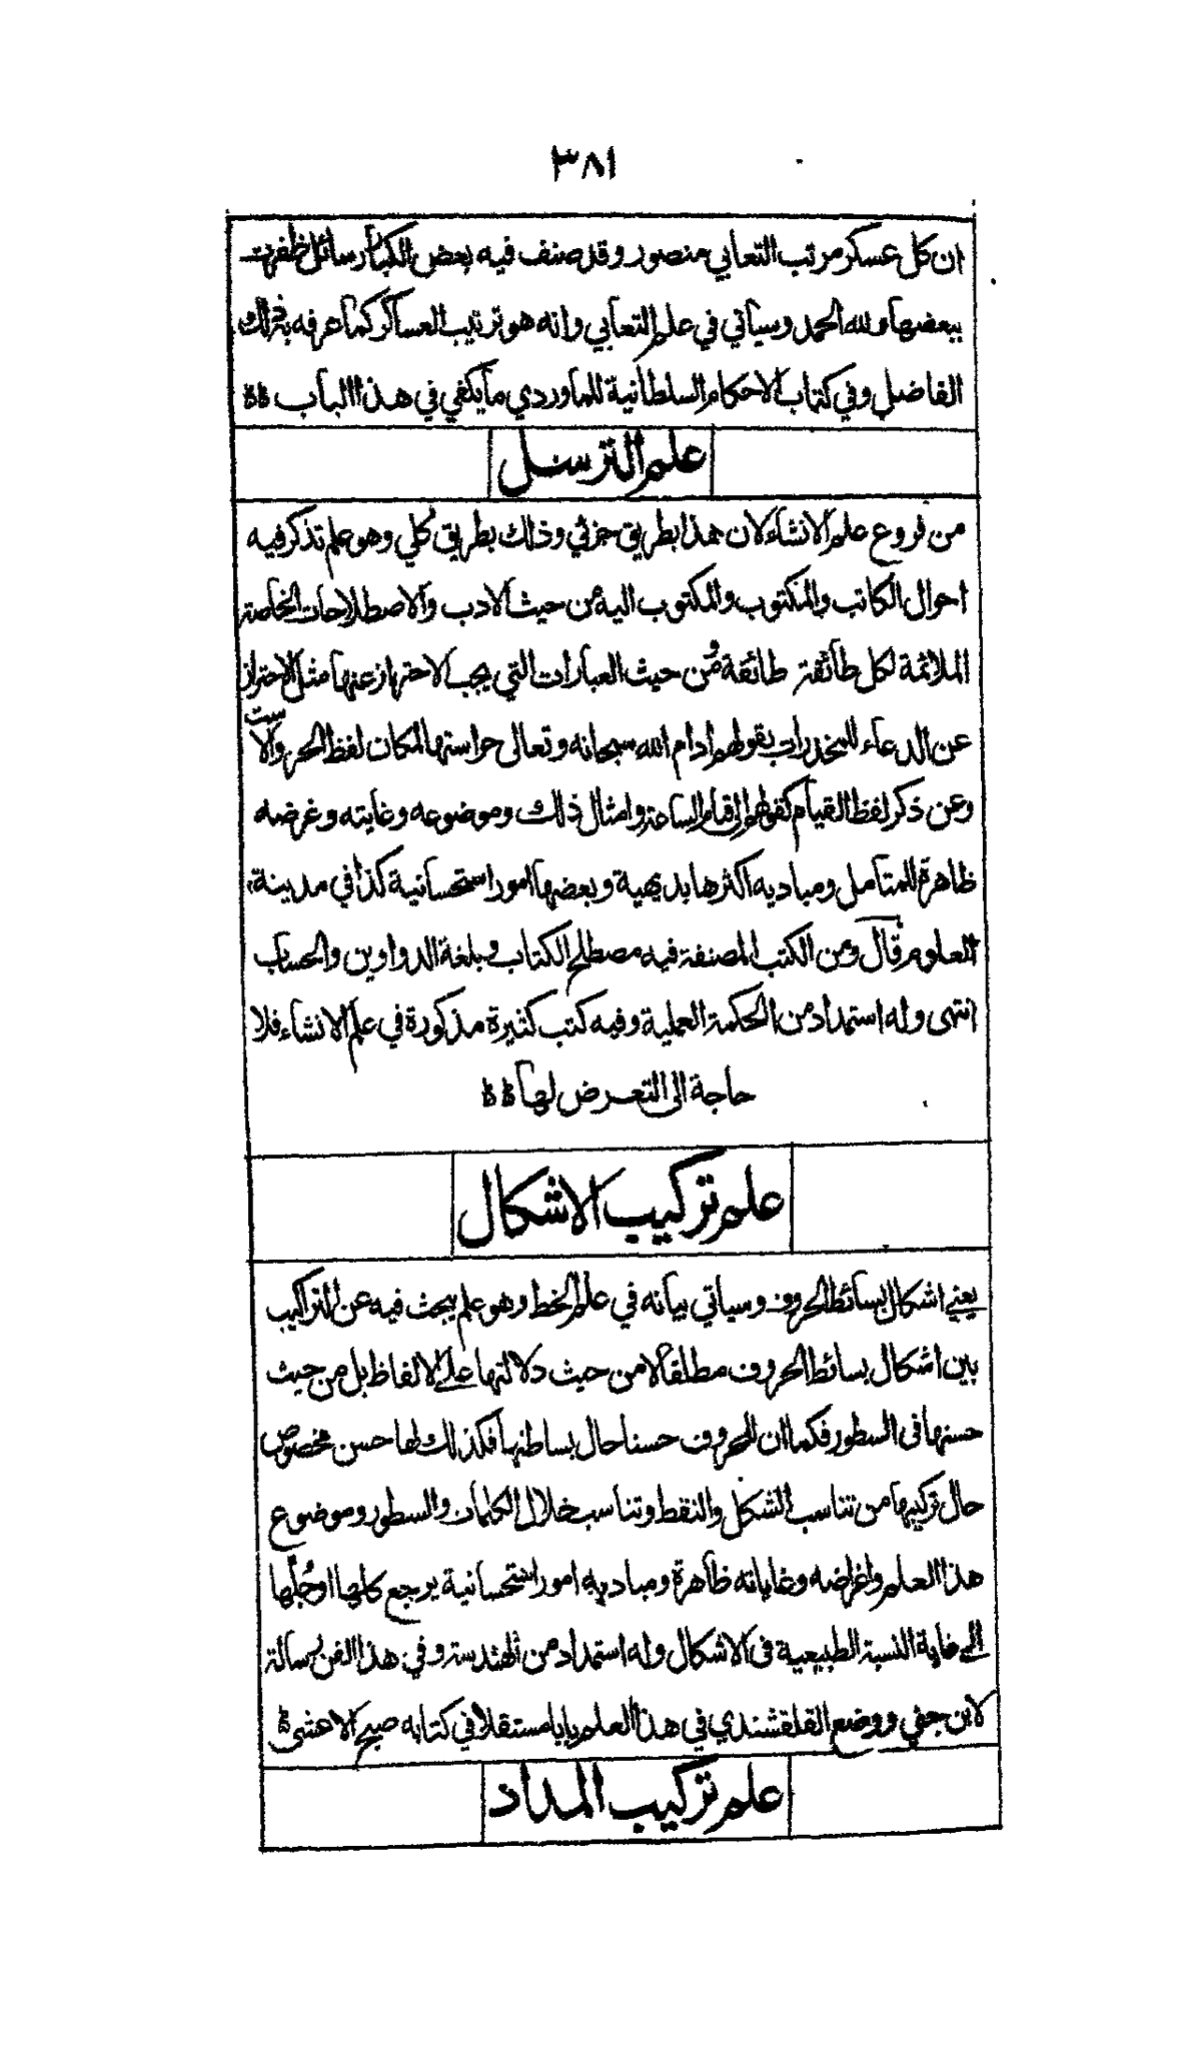 ٣٨١
ان كل عسكر مرتب التعابي منصور وقد صنف فيه بعض الكبار رسائل ظفرت
ببعضها ولله الحمد وسياتي في علم التعابي وانه هو ترتيب العساكر كما عرفه بذلك
الفاضل وفي كتاب الاحكام السلطانية للماوردي ما يكفي في هذا الباب
علم الترسل
من فروع علم الانشاء لان هذا بطريق جزئي وذلك بطريق كلي وهو علم تذكر فيه
احوال الكاتب والمكتوب والمكتوب اليه من حيث الادب والاصطلاحات الخاصة
الملائمة لكل طائفة طائفة ومن حيث العبارات التي يجب الاحتراز عنها مثل الاحتراز
عن الدعاء للمخدرات بقولهم ادام الله سبحانه وتعالى حراستها لمكان لفظ الحر والاست
وعن ذكر لفظ القيام كقولهم الى قيام الساعة وامثال ذلك وموضوعه وغايته وغرضه
ظاهرة للمتامل ومباديه اكثرها بديهية وبعضها امور استحسانية كذا في مدينة
العلوم قال ومن الكتب المصنفة فيه مصطلح الكتاب وبلغة الدواوين والحساب
انتهى وله استمداد من الحكمة العملية وفيه كتب كثيرة مذكورة في علم الانشاء فلا
حاجة الى التعرض لها
علم تركيب الاشكال
يعني اشكال بسائط الحروف وسياتي بيانه في علم الخط وهو علم يبحث فيه عن التراكيب
بين اشكال بسائط الحروف مطلقا لا من حيث دلالتها على الالفاظ بل من حيث
حسنها في السطور فكما ان للحروف حسنا حال بساطتها فكذلك لها حسن مخصوص
حال تركيبها من تناسب الشكل والنقط وتناسب خلال الكلمات والسطور وموضوع
هذا العلم واغراضه وغاياته ظاهرة ومباديه امور استحسانية يرجع كلها او جلها
الى رعاية النسبة الطبيعية في الاشكال وله استمداد من الهندسة وفي هذا الفن رسالة
لابن جني ووضع القلقشندي في هذا العلم بابا مستقلا في كتابه صبح الاعشى
علم تركيب المداد